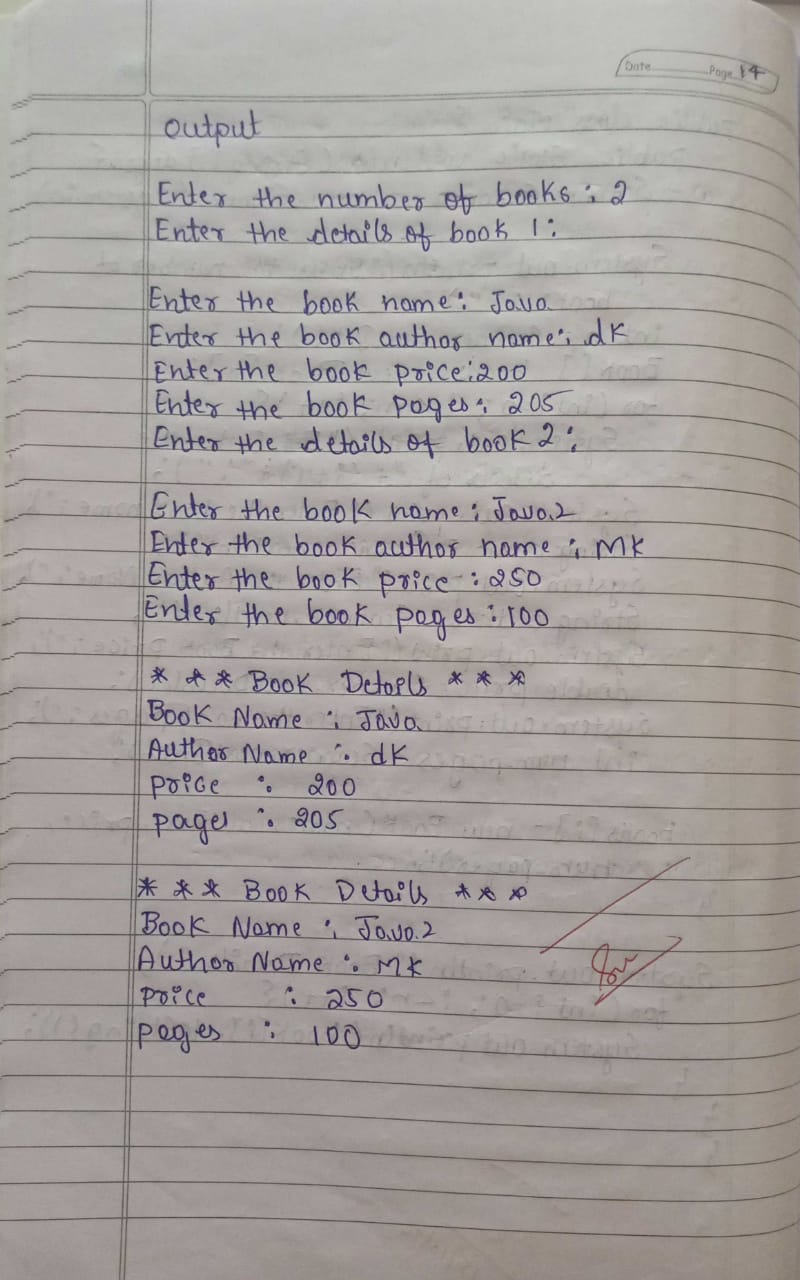 Date Page 14
Output
Enter the number of books : 2
Enter the details of book 1 :
Enter the book name : Java
Enter the book author name : dk
Enter the book price : 200
Enter the book pages : 205
Enter the details of book 2 :
Enter the book name : Java2
Enter the book author name : MK
Enter the book price : 250
Enter the book pages : 100
* * * Book Details * * *
Book Name : Java
Author Name : dk
price : 200
pages : 205
* * * Book Details * * *
Book Name : Java2
Author Name : MK
price : 250
pages : 100